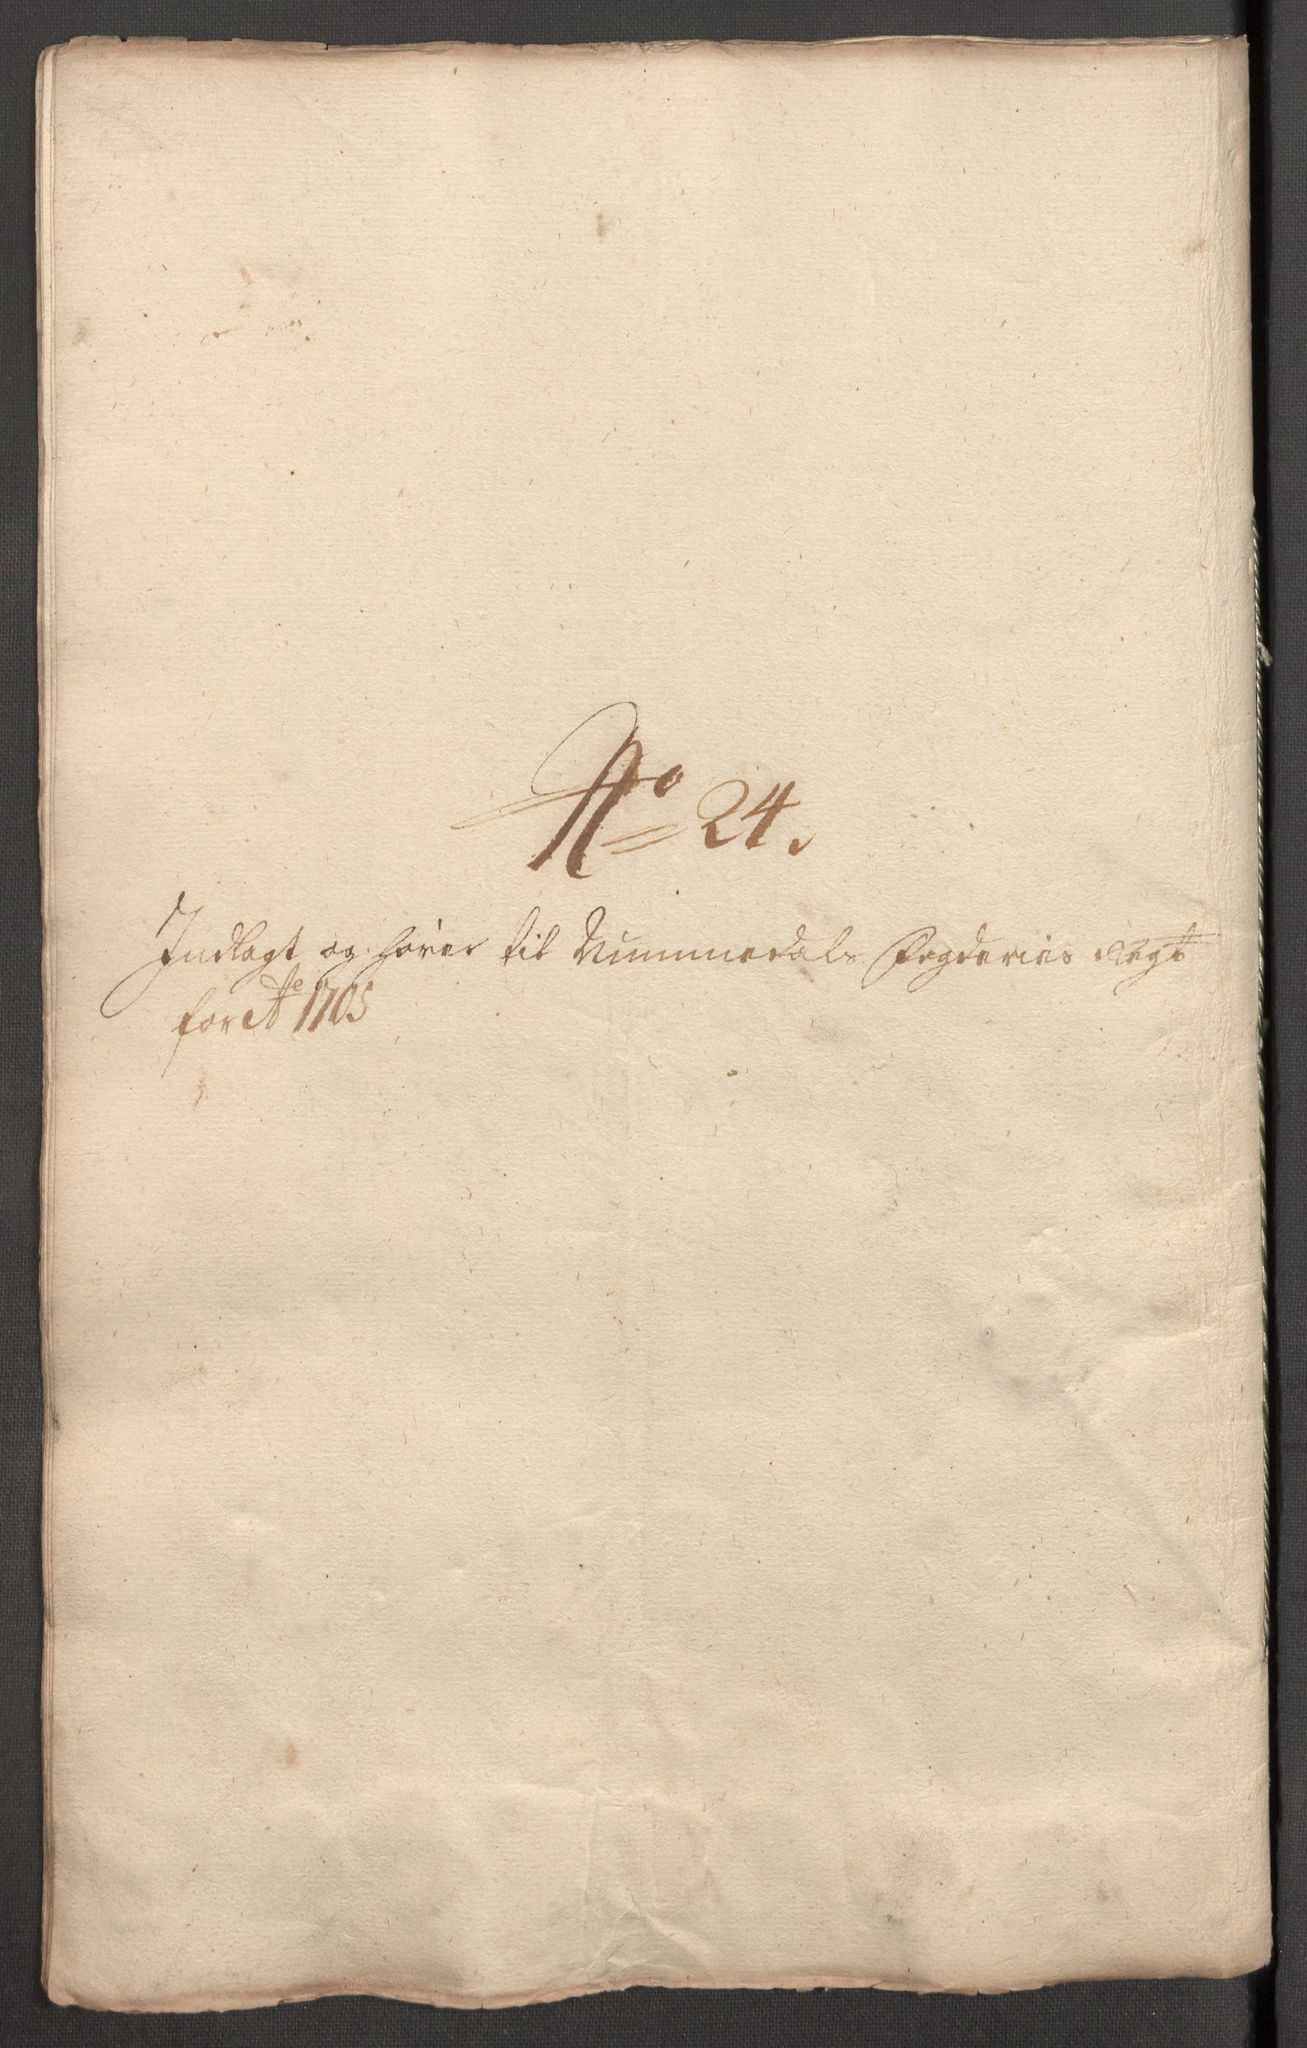 No 24.
Indlagt og hører til Nummedals Fogderies Regt
for Ao 1705